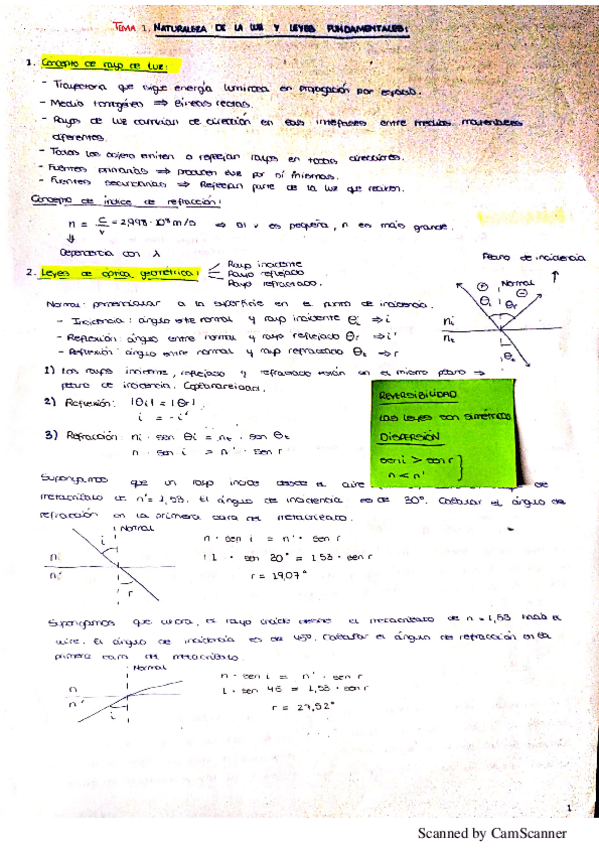 TEMA 1. NATURALEZA DE LA LUZ Y LEYES FUNDAMENTALES:
1. Concepto de rayo de luz:
- Trayectoria que sigue energía luminosa en propagación por espacio.
- Medio homogéneo ⇒ líneas rectas.
- Rayos de luz cambian de dirección en las interfases entre medios materiales
diferentes.
- Todos los objeto emiten o reflejan rayos en todas direcciones.
- Fuentes primarias ⇒ producen luz por sí mismas.
- Fuentes secundarias ⇒ Reflejan parte de la luz que reciben.
Concepto de índice de refracción:
n = c/v = 2,998 · 10⁸ m/s ⇒ si v es pequeña, n es más grande.
⇓
Dependencia con λ
2. Leyes de óptica geométrica:
Rayo incidente
Rayo reflejado
Rayo refractado.
Plano de incidencia
Normal
θi θr
ni
nt
θt
Normal: perpendicular a la superficie en el punto de incidencia.
- Incidencia: ángulo entre normal y rayo incidente θi ⇒ i
- Reflexión: ángulo entre normal y rayo reflejado θr ⇒ i'
- Refracción: ángulo entre normal y rayo refractado θt ⇒ r
1) Los rayos incidente, reflejado y refractado están en el mismo plano ⇒
plano de incidencia.
2) Reflexión: |θi| = |θr|
i = -i'
3) Refracción: ni · sen θi = nt · sen θt
n · sen i = n' · sen r
REVERSIBILIDAD
Las leyes son simétricas
DISPERSIÓN
sen i > sen r
n < n'
Supongamos que un rayo incide desde el aire de
metacrilato de n' = 1,53. El ángulo de incidencia es de 30º. Calcular el ángulo de
refracción en la primera cara del metacrilato.
Normal
i
n
n'
r
n · sen i = n' · sen r
1 · sen 30° = 1,53 · sen r
r = 19,07°
Supongamos que ahora, el rayo incide desde el metacrilato de n = 1,53 hacia el
aire. El ángulo de incidencia es de 45º. Calcular el ángulo de refracción en la
primera cara del metacrilato.
Normal
n
n'
i
n · sen i = n' · sen r
1 · sen 45 = 1,53 · sen r
r = 27,52°
1
Scanned by CamScanner